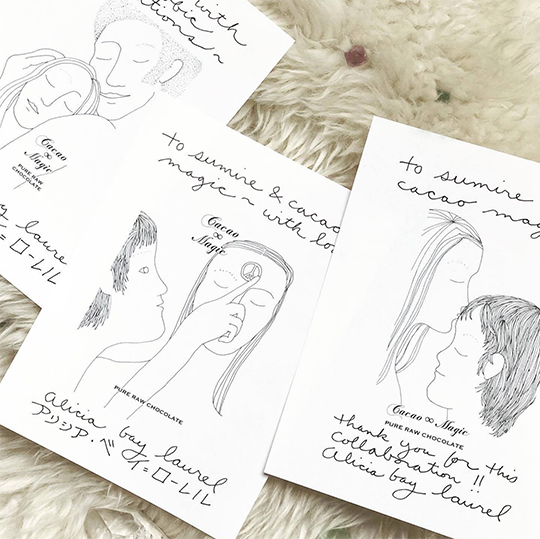 with
tions ~
Cacao
∞
Magic
PURE RAW
CHOCOLATE
bay laure
イ=ローレル
to sumire & cacao
magic ~ with lo
Cacao
∞
Magic
PURE RAW CHOCOLATE
alicia bay laurel
アリシア・ベイ=ローレル
to sumire
cacao mag
Cacao ∞ Magic
PURE RAW CHOCOLATE
thank you for this
collaboration !!
alicia bay laurel